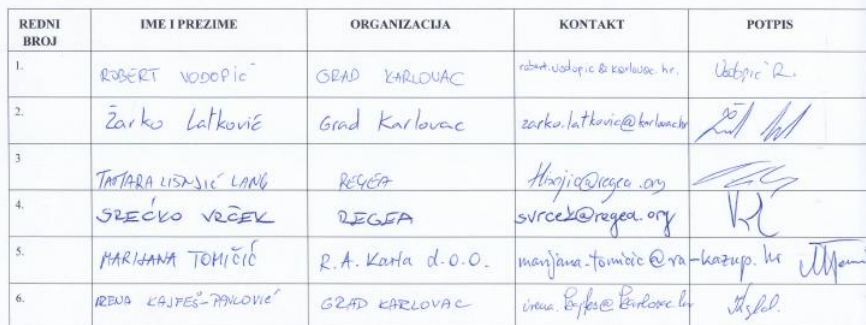 REDNI BROJ IME I PREZIME ORGANIZACIJA KONTAKT POTPIS
1. ROBERT VODOPIĆ GRAD KARLOVAC robert.vodopic@karlovac.hr. Vodopić R.
2. Žarko Latković Grad Karlovac zarko.latkovic@karlovac.hr
3 TAMARA LISNJIĆ LANG REGEA
4. SREĆKO VRČEK REGEA svrcek@regea.org
5. MARIJANA TOMIČIĆ R.A. Karla d.o.o. marijana.tomicic@ra-kazup.hr
6. IRENA KAJFEŠ-PAVLOVIĆ GRAD KARLOVAC